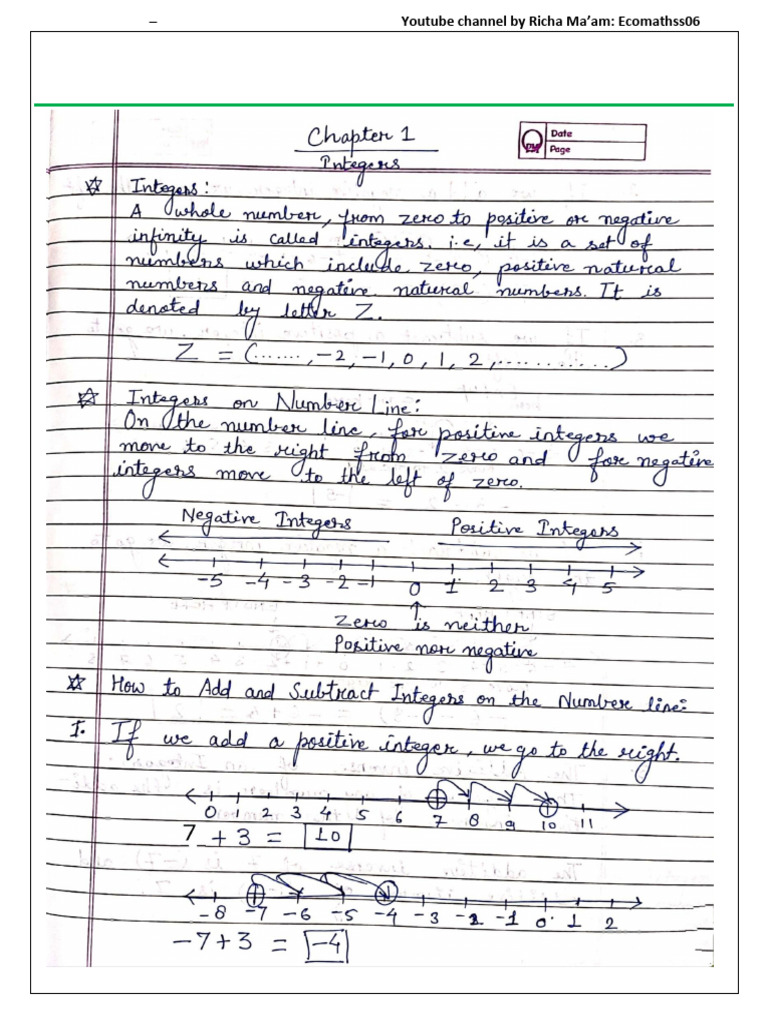 – Youtube channel by Richa Ma’am: Ecomathss06
Chapter 1
Integers
Date
Page
PM
☆ Integers:
A whole number, from zero to positive or negative
infinity is called integers. i.e, it is a set of
numbers which include zero, positive natural
numbers and negative natural numbers. It is
denoted by letter Z.
Z = (......., -2, -1, 0, 1, 2, ............)
☆ Integers on Number Line:
On the number line, for positive integers we
move to the right from zero and for negative
integers move to the left of zero.
Negative Integers Positive Integers
-5 -4 -3 -2 -1 0 1 2 3 4 5
Zero is neither
Positive nor negative
☆ How to Add and Subtract Integers on the Number line:
I. If we add a positive integer, we go to the right.
0 1 2 3 4 5 6 7 8 9 10 11
7 + 3 = 10
-8 -7 -6 -5 -4 -3 -2 -1 0 1 2
-7+3 = -4